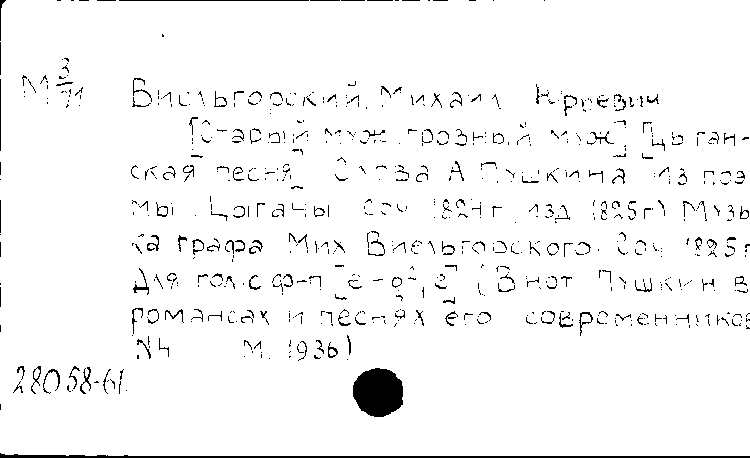 М 3/71 Виельгорский, Михаил Юрьевич
[Старый муж, грозный муж] [Цыган-
ская песня] Слова А Пушкина из поэ
мы Цыганы соч 1824 г изд 1825 г) Музы
ка графа Мих Виельгорского. Соч 1825 г
Для гол. с ф-п [e-g², e] (В нот Пушкин в
романсах и песнях его современников
N4 М. 1936)
28058-61.